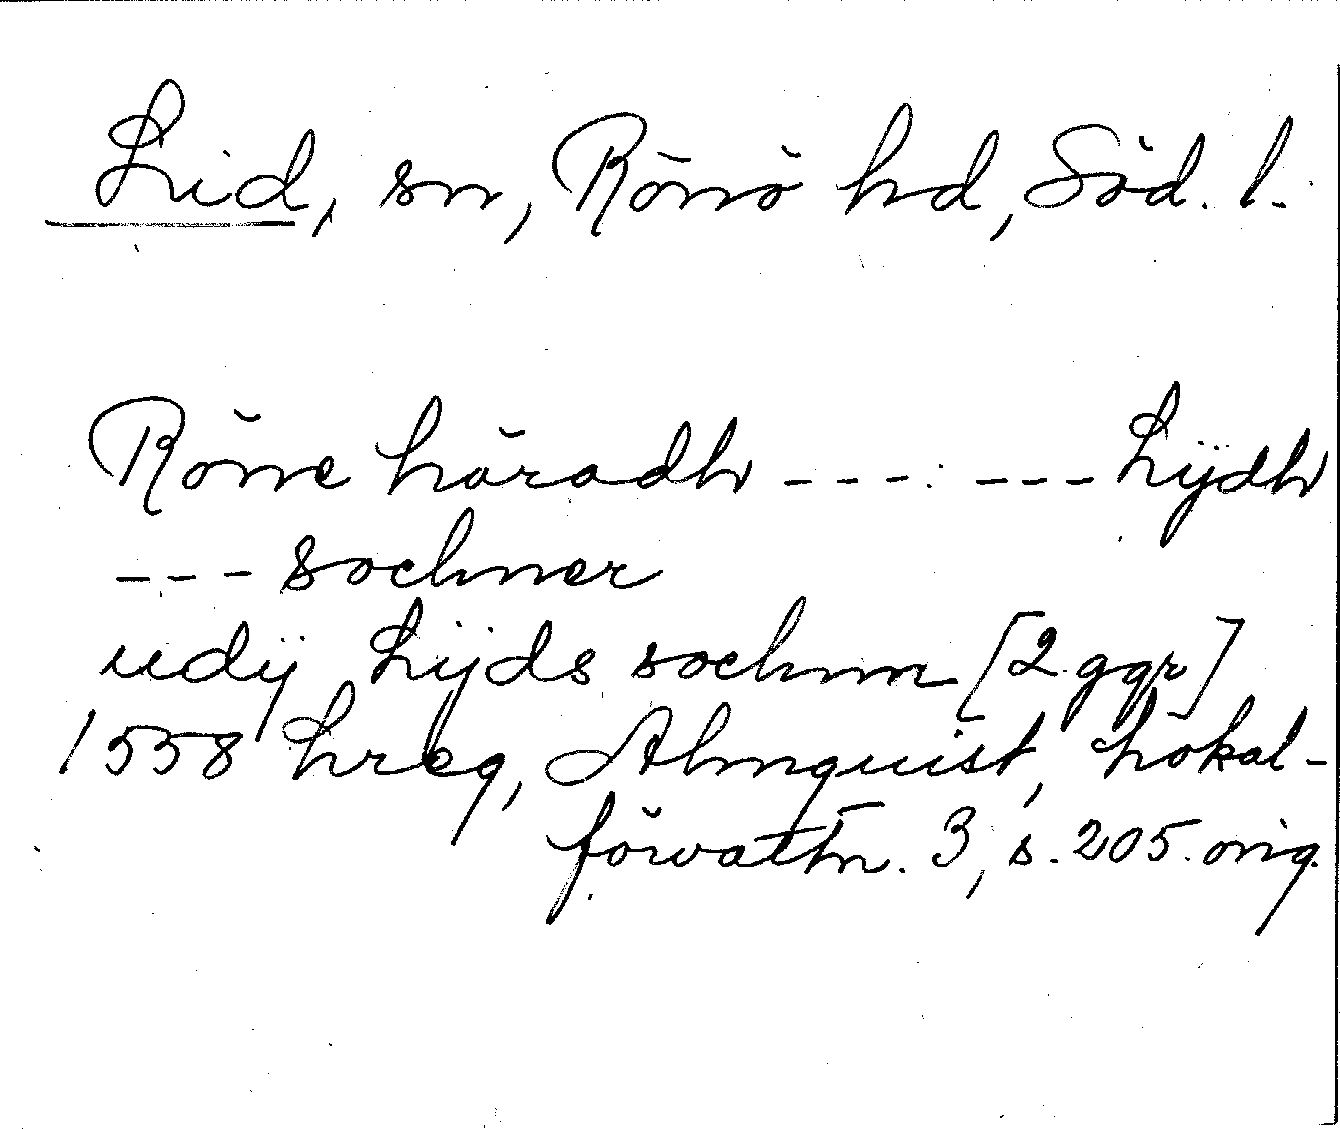 Lid, sn, Rönö hd, Söd. l.
Röne häradh - - - . - - - Lÿdh
- - - sochner
udÿ Lÿds sochnn [2 ggr]
1558 Lreg, Almquist, Lokal-
förvaltn. 3, s. 205. orig.